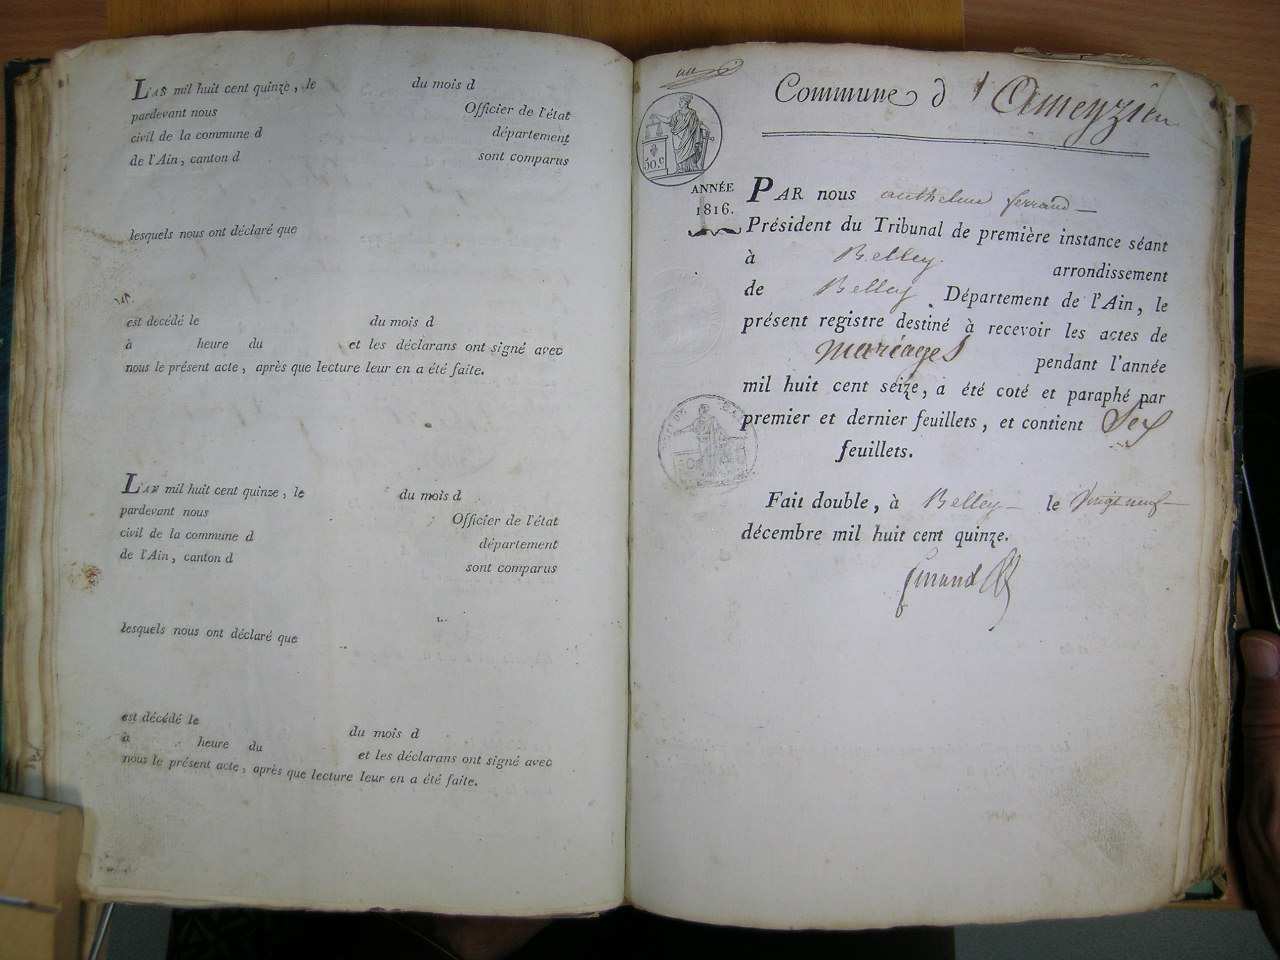 L'AN mil huit cent quinze, le du mois d
pardevant nous Officier de l'état
civil de la commune d département
de l'Ain, canton d sont comparus
lesquels nous ont déclaré que
est decédé le du mois d
à heure du et les déclarans ont signé avec
nous le présent acte, après que lecture leur en a été faite.
L'AN mil huit cent quinze, le du mois d
pardevant nous Officier de l'état
civil de la commune d département
de l'Ain, canton d sont comparus
lesquels nous ont déclaré que
est décédé le du mois d
à heure du et les déclarans ont signé avec
nous le présent acte, après que lecture leur en a été faite.
Commune d'Ameyzieu
50.c
ANNÉE
1816.
PAR nous anthelme ferrand
Président du Tribunal de première instance séant
à Belley arrondissement
de Belley. Département de l'Ain, le
présent registre destiné à recevoir les actes de
mariages pendant l'année
mil huit cent seize, a été coté et paraphé par
premier et dernier feuillets, et contient Six
feuillets.
Fait double, à Belley le vingt neuf
décembre mil huit cent quinze.